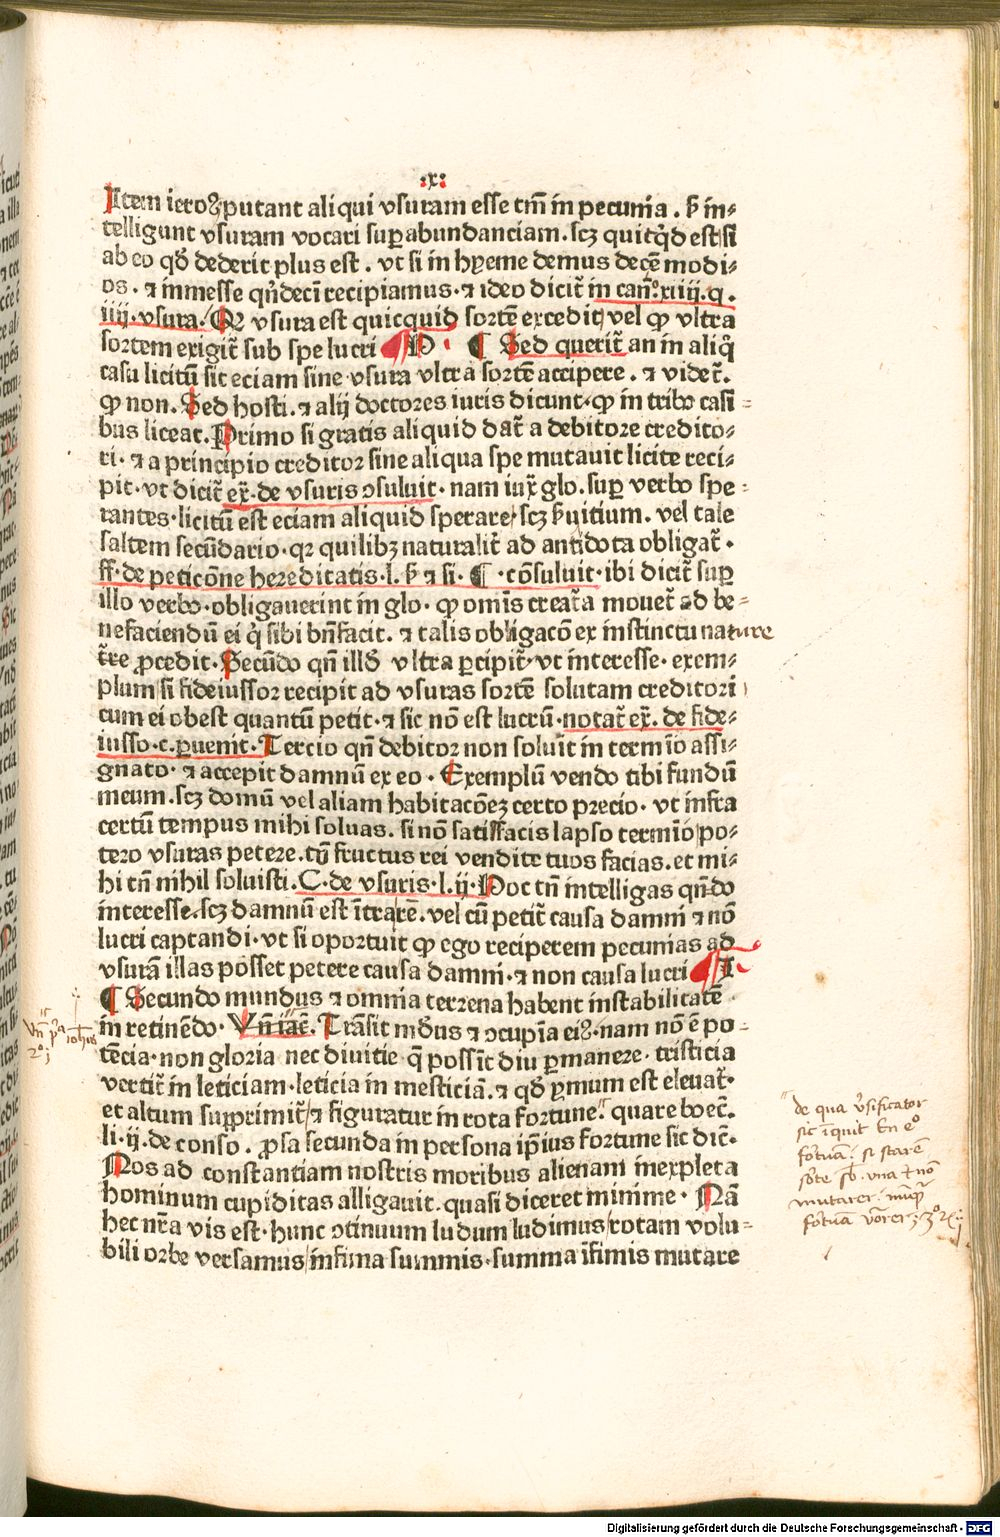 :x:
Item iero⁊ putant aliqui vsuram esse tm̄ in pecunia . s̄ in⸗
telligunt vsuram vocari suꝑabundanciam. scꝫ quitq̇d est si
ab eo qđ dederit plus est . vt si in hyeme demus decē modi⸗
os . ⁊ in messe qn̄decī recipiamus. ⁊ ideo dicit̄ in can̄. xiiij. q.
iiij. vsura. / Qꝛ vsura est quicquid sortē excedit / vel ꝙ vltra
sortem exigit̄ sub spe lucri ¶ D . ¶ Sed querit̄ an in aliq̇
casu licitū sit eciam sine vsura vltra sortē accipere . ⁊ videt̄.
ꝙ non. Sed hosti. ⁊ alij doctores iuris dicunt. ꝙ in tribꝰ casi⸗
bus liceat. Primo si gratis aliquid dat̄ a debitore credito⸗
ri. ⁊ a principio creditor sine aliqua spe mutauit licite reci⸗
pit. vt dicit̄ ex̄. de vsuris ↄsuluit. nam iux̄ glo. suꝑ verbo spe⸗
rantes. licitū est eciam aliquid sperare / scꝫ s̄uitium. vel tale
saltem secūdario. qꝛ quilibꝫ naturalit̄ ad antidota obligat̄.
ff. de peticōne hereditatis. l. s̄ ⁊ si. ¶ . cōsuluit. ibi dicit̄ suꝑ
illo verbo. obligauerint in glo. ꝙ omīs creat̄a mouet̄ ad be⸗
nefaciendū ei q̇ sibi bn̄facit. ⁊ talis obligacō ex instinctu nature
t̄re ꝓcedit. Secūdo qn̄ illđ vltra ꝑcipit̄ vt interesse. exem⸗
plum si fideiussor recipit ad vsuras sortē solutam creditori
cum ei obest quantū petit. ⁊ sic nō est lucrū. notat̄ ex̄. de fide⸗
iusso. c. ꝑuenit. Tercio qn̄ debitor non soluit in term̄io assi⸗
gnato. ⁊ accepit damnū ex eo. Exemplū vendo tibi fundū
meum. scꝫ domū vel aliam habitacōeꝫ certo precio. vt infra
certū tempus mihi soluas. si nō satisfacis lapso term̄io po⸗
tero vsuras petere. tū fructus rei vendite tuos facias. et mi⸗
hi tn̄ nihil soluisti. C. de vsuris. l. ij. Hoc tn̄ intelligas qn̄do
interesse. scꝫ damnū est ītrarē. vel cū petit̄ causa damni ⁊ nō
lucri captandi. vt si oportuit ꝙ ego reciperem pecunias ad
vsurā illas posset petere causa damni. ⁊ non causa lucri ¶ I
¶ Secundo mundus ⁊ omnia terrena habent instabilitatē
in retinēdo. Vn̄ iāc̄. Trāsit mđus ⁊ ↄcupīa ei⁊. nam nō ē po⸗
tēcia. non gloria nec diuitie q̄ possīt diu ꝑmanere. tristicia
vertit̄ in leticiam. leticia in mesticiā. ⁊ qđ p̄mum est eleuat̄.
et altum supprimit̄ / ⁊ figuratur in rota fortune. quare boec̄.
li. ij. de conso. ꝓsa secunda in persona ip̄ius fortune sic dic̄.
Nos ad constantiam nostris moribus alienam inexpleta
hominum cupiditas alligauit. quasi diceret minime. Nā
hec nr̄a vis est. hunc ↄtinuum ludum ludimus / rotam volu⸗
bili orbe versamus / infima summis. summa īfimis mutare
Vn̄ p̄ᵃ ioh̄is
2º
de qua v̄sificator
sic inquit
fortuā. si starē
sorte sb̄ vna ⁊ nō
mutarer. nuq̄
Digitalisierung gefördert durch die Deutsche Forschungsgemeinschaft - DFG